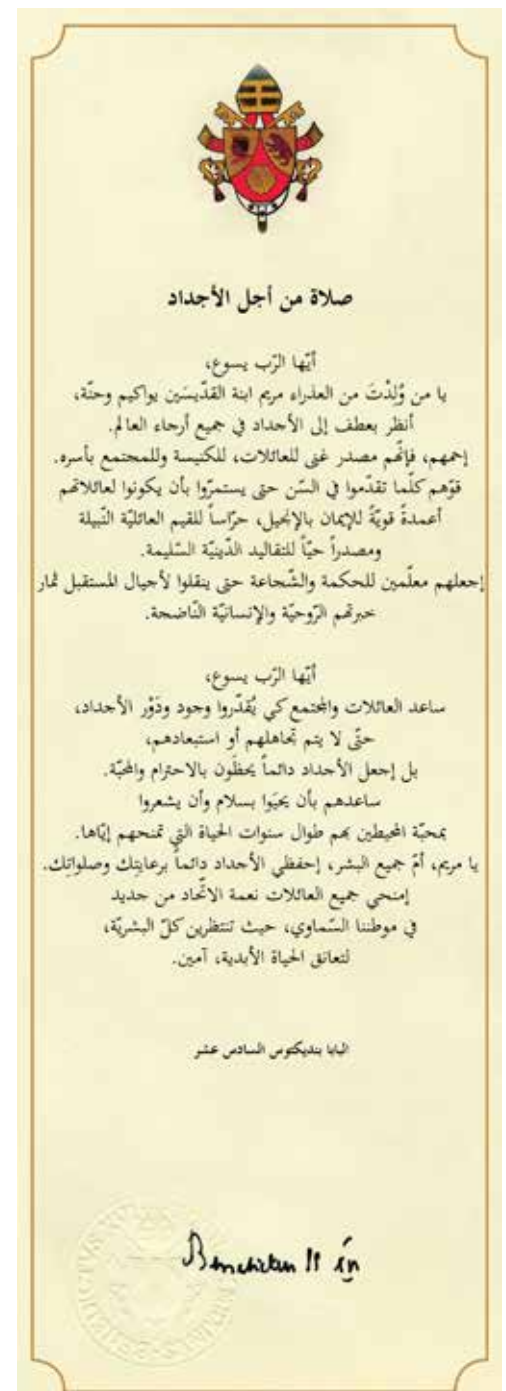 صلاة من أجل الأجداد
أيّها الرّب يسوع،
يا من وُلِدْتَ من العذراء مريم ابنة القدّيسَين يواكيم وحنّة،
أنظر بعطف إلى الأجداد في جميع أرجاء العالم.
إحمهم، فإنّهم مصدر غنى للعائلات، للكنيسة وللمجتمع بأسره.
قوّهم كلّما تقدّموا في السّن حتى يستمرّوا بأن يكونوا لعائلاتهم
أعمدةً قويّةً للإيمان بالإنجيل، حرّاساً للقيم العائليّة النّبيلة
ومصدراً حيّاً للتقاليد الدّينيّة السّليمة.
إجعلهم معلّمين للحكمة والشّجاعة حتى ينقلوا لأجيال المستقبل ثمار
خبرتهم الرّوحيّة والإنسانيّة النّاضجة.
أيّها الرّب يسوع،
ساعد العائلات والمجتمع كي يُقدّروا وجود ودَوْر الأجداد،
حتّى لا يتم تجاهلهم أو استبعادهم،
بل إجعل الأجداد دائماً يحظَون بالاحترام والمحبّة.
ساعدهم بأن يحيَوا بسلام وأن يشعروا
بمحبّة المحيطين بهم طوال سنوات الحياة التي تمنحهم إيّاها.
يا مريم، أمّ جميع البشر، إحفظي الأجداد دائماً برعايتك وصلواتِك.
إمنحي جميع العائلات نعمة الاتّحاد من جديد
في موطننا السّماوي، حيث تنتظرين كلّ البشريّة،
لتعانق الحياة الأبدية، آمين.
البابا بنديكتوس السادس عشر